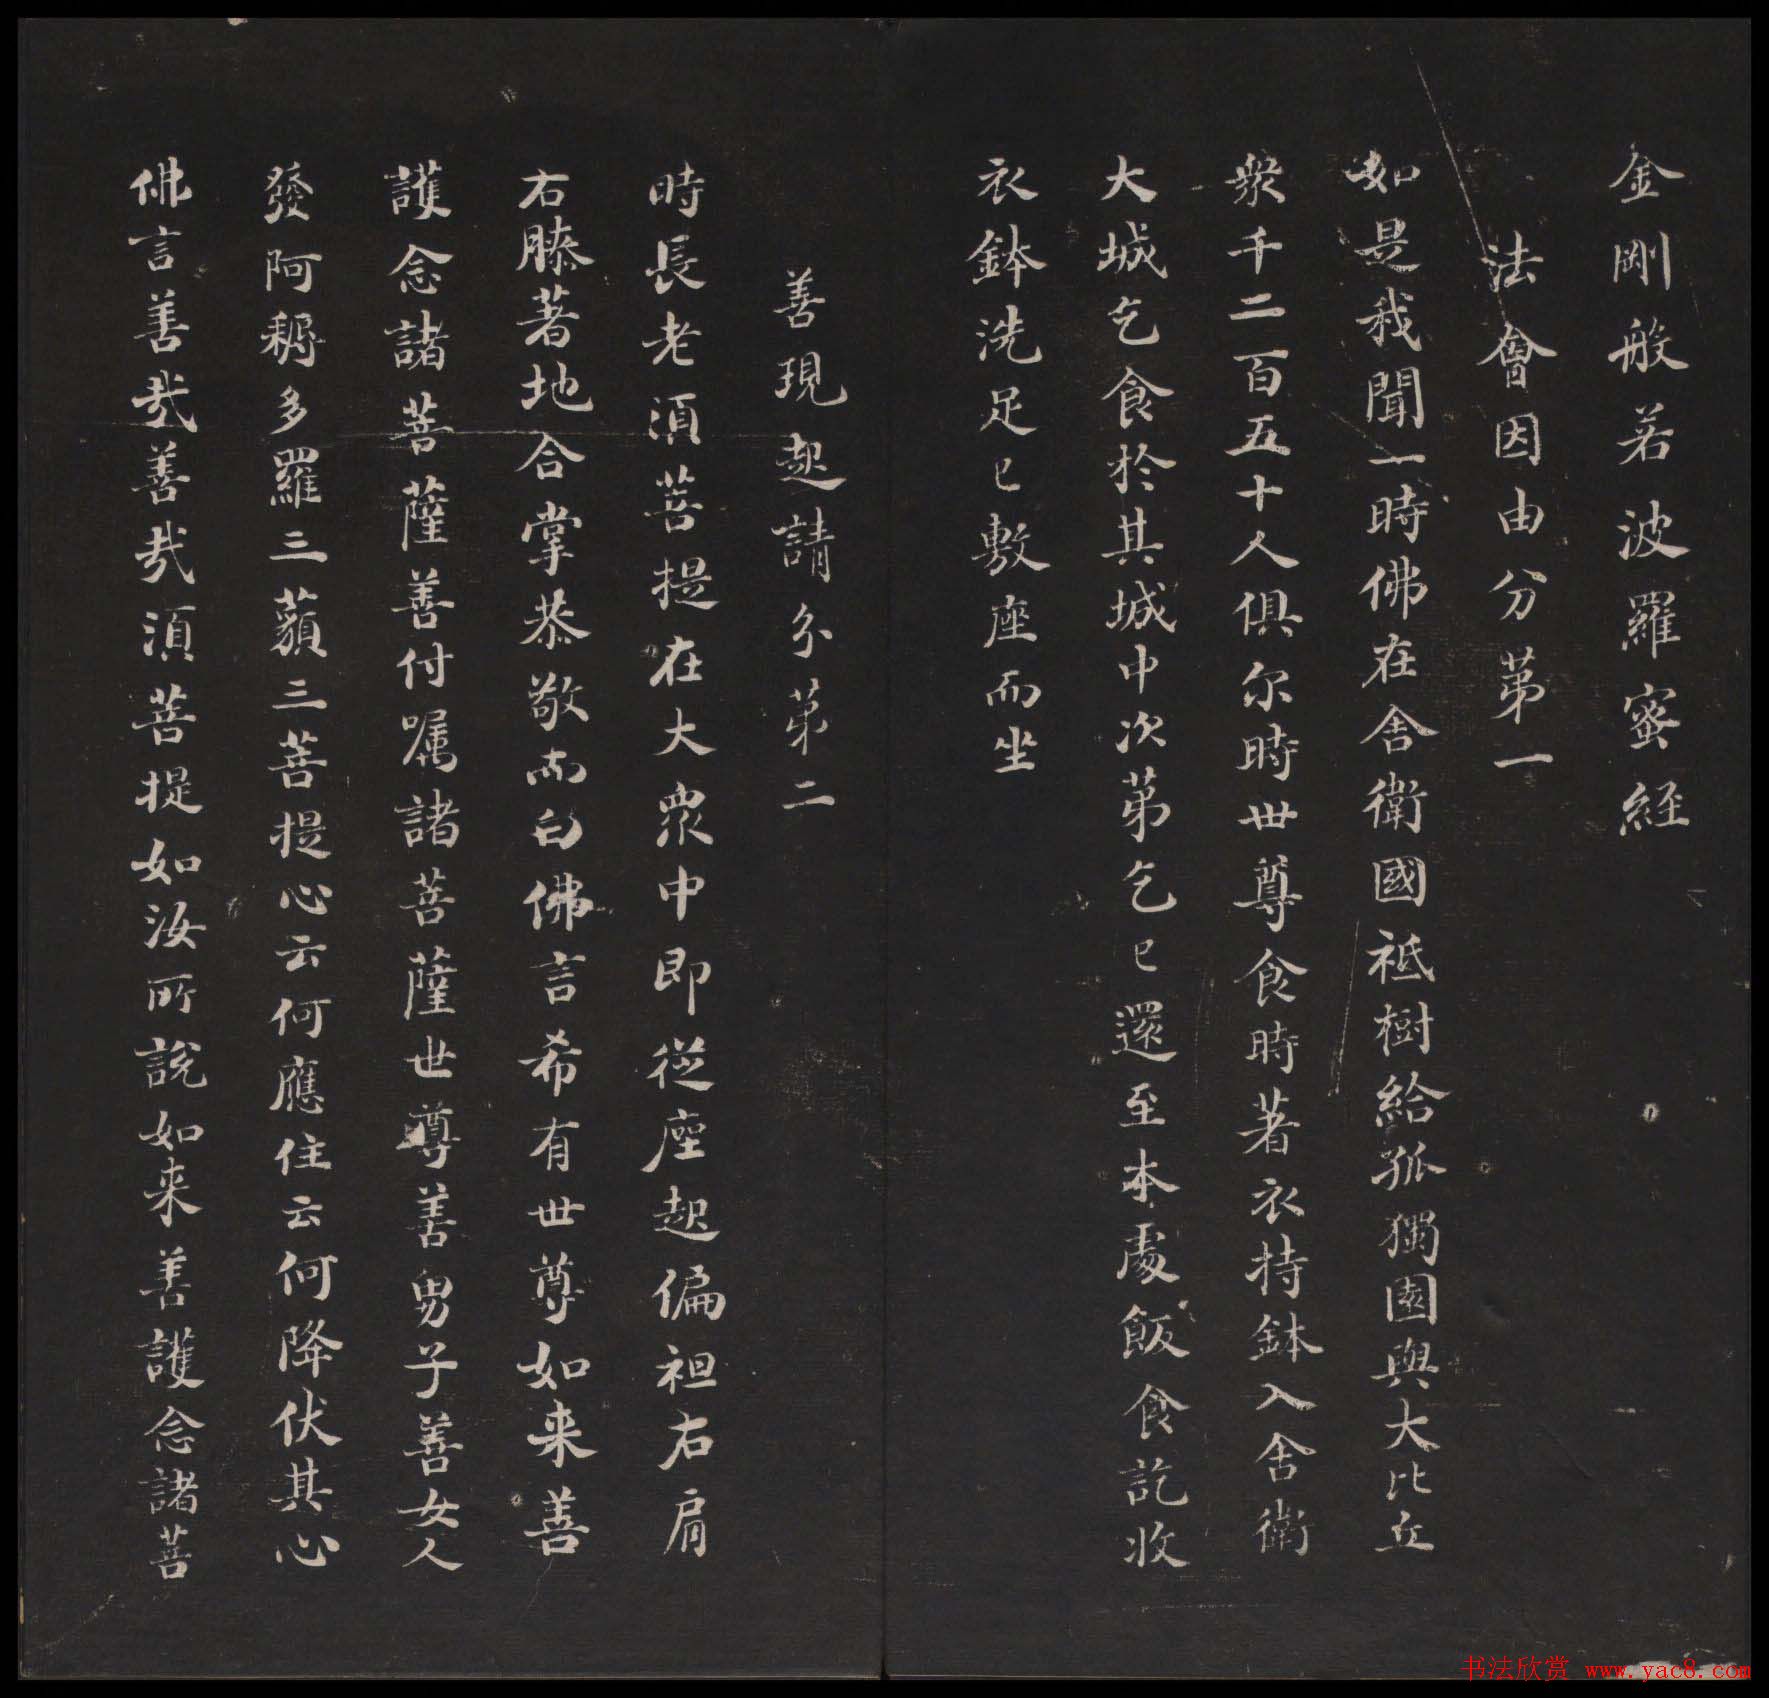 金剛般若波羅蜜經
法會因由分第一
如是我聞一時佛在舍衛國祇樹給孤獨園與大比丘
衆千二百五十人俱尔時世尊食時著衣持鉢入舍衛
大城乞食於其城中次第乞已還至本處飯食訖收
衣鉢洗足已敷座而坐
善現起請分第二
時長老須菩提在大衆中即從座起偏袒右肩
右膝著地合掌恭敬而白佛言希有世尊如来善
護念諸菩薩善付嘱諸菩薩世尊善男子善女人
發阿耨多羅三藐三菩提心云何應住云何降伏其心
佛言善哉善哉須菩提如汝所說如来善護念諸菩
书法欣赏 www.yac8.com